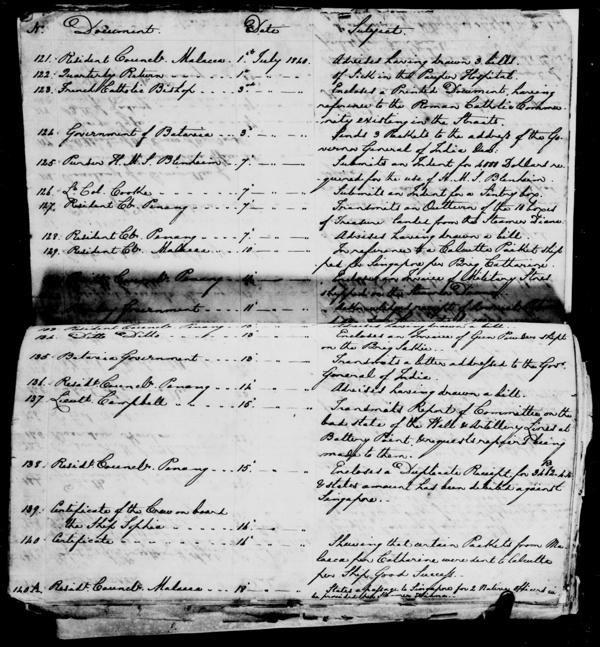 No. Document. Date Subject.
121. Resident Councr. Malacca 1st July 1840. Advises having drawn 3 bills.
122. Quarterly Return 1st Of Sick in the Pauper Hospital.
123. French Catholic Bishop 3rd Encloses a Printed Document, having
reference to the Roman Catholic Commu-
nity existing in the Straits.
124. Government of Batavia 3 Sends 3 Packets to the address of the Go-
vernor General of India &c.
125 Purser H.M.S. Blenheim 7 Submits an Indent for 4000 Dollars re-
quired for the use of H.M.S. Blenheim
126. Lt. Col. Cooke 7 Submits an Indent for a Sentry box.
127. Resident Cr. Penang 7 Transmits an Outturn of the 18 boxes
of Treasure landed from the Steamer Diana
128. Resident Cr. Penang 7 Advises having drawn a bill.
129. Resident Cr. Malacca 10 In reference to a Calcutta Packet ship-
ped for Singapore per Brig Catherine
Penang Invoice of Military Stores
shipped on the
Government 11
Resident Councr. Penang Advises having drawn a bill.
134. Ditto Ditto 13 Encloses an Invoice of Gun Powder shipt
on the Brig
135. Batavia Government 13 Transmits a letter addressed to the Govr.
General of India.
136. Residt. Councr. Penang 14 Advises having drawn a bill.
137. Lieutt. Campbell 15 Transmits Report of Committee on the
bad state of the Well & Artillery Lines at
Battery Point, & requests repairs being
made to them.
138. Residt. Councr. Penang 15 Encloses a Duplicate Receipt for
& states amount has been debited against
Singapore.
139. Certificate of the Crew on board
the Ship Sophia 16
140. Certificate 16 Shewing that certain Packets from Ma-
lacca per Catharine were sent to Calcutta
per Ship Good Success.
140A. Residt. Councr. Malacca 18 States a passage to Singapore for 2 Native Officers